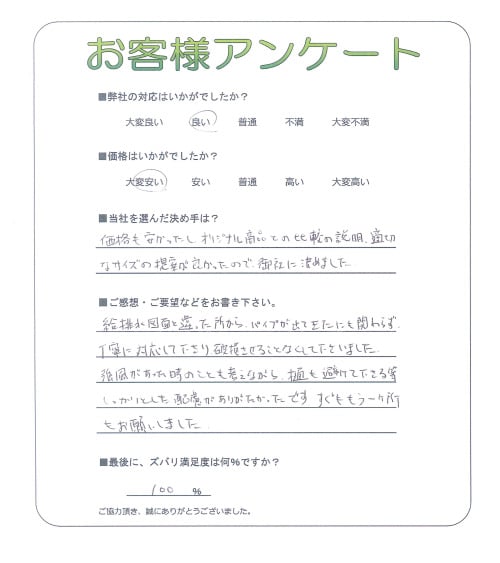 お客様アンケート
■弊社の対応はいかがでしたか？
大変良い 良い 普通 不満 大変不満
■価格はいかがでしたか？
大変安い 安い 普通 高い 大変高い
■当社を選んだ決め手は？
価格も安かったし、オリジナル商品との比較の説明、適切
なサイズの提案が良かったので、御社に決めました。
■ご感想・ご要望などをお書き下さい。
給排水図面と違った所から、パイプが出てきたにも関わらず、
丁寧に対応して下さり破損させることなくして下さいました。
強風があった時のことも考えながら、植も避けて下さる等
しっかりとした配慮がありがたかったです すぐにももう一ヶ所
もお願いしました。
■最後に、ズバリ満足度は何%ですか？
100 %
ご協力頂き、誠にありがとうございました。